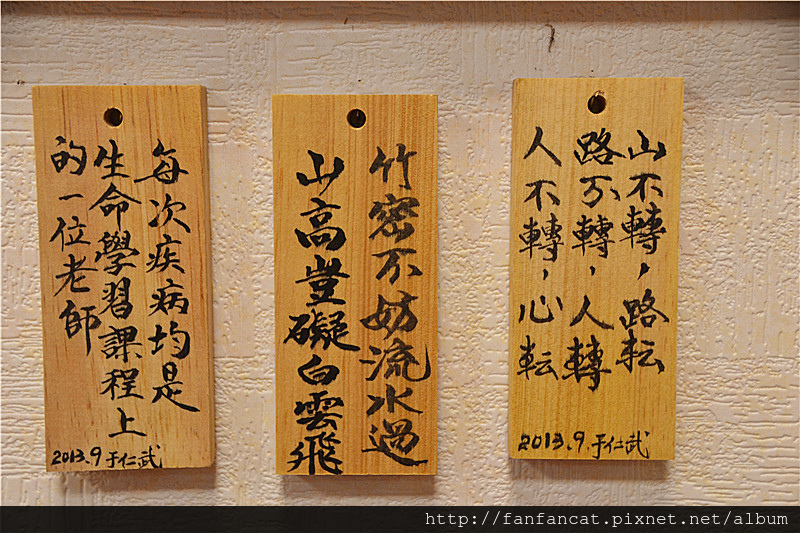 每次疾病均是
生命學習課程上
的一位老師
2013.9 于仁武
竹密不妨流水過
山高豈礙白雲飛
山不轉，路転
路不轉，人轉
人不轉，心転
2013.9. 于仁武
http://fanfancat.pixnet.net/album